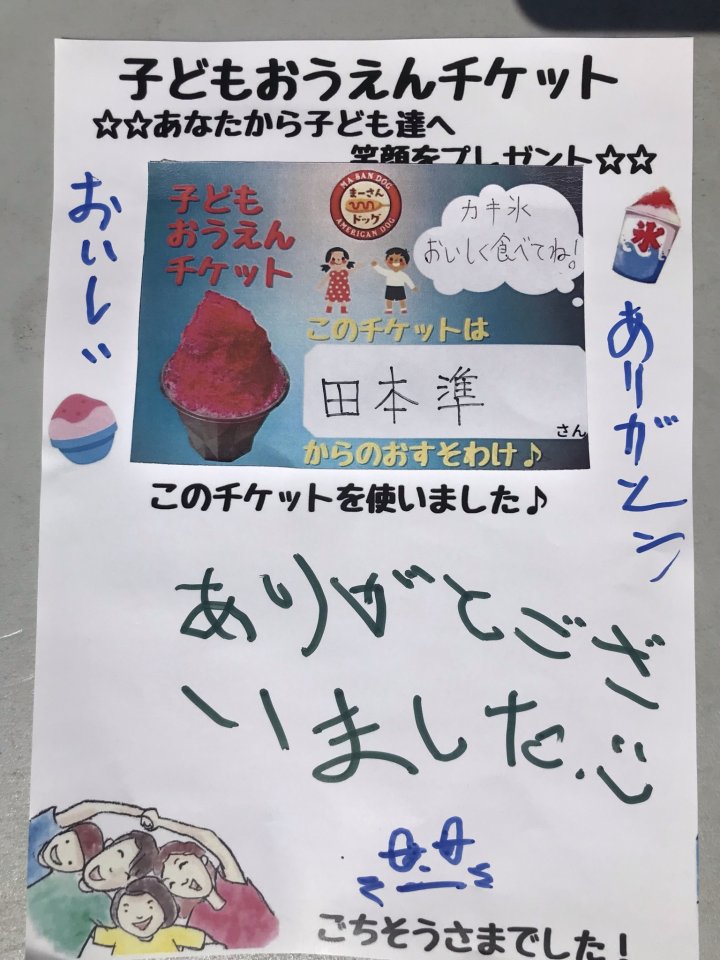 子どもおうえんチケット
☆☆あなたから子ども達へ
笑顔をプレゼント☆☆
おいしい
子ども
おうえん
チケット
MA SAN DOG
まーさん
ドッグ
AMERICAN DOG
カキ氷
おいしく食べてね!
氷
このチケットは
田本準
さん
からのおすそわけ♪
ありがとう
このチケットを使いました♪
ありがとうござ
いました。
ごちそうさまでした!